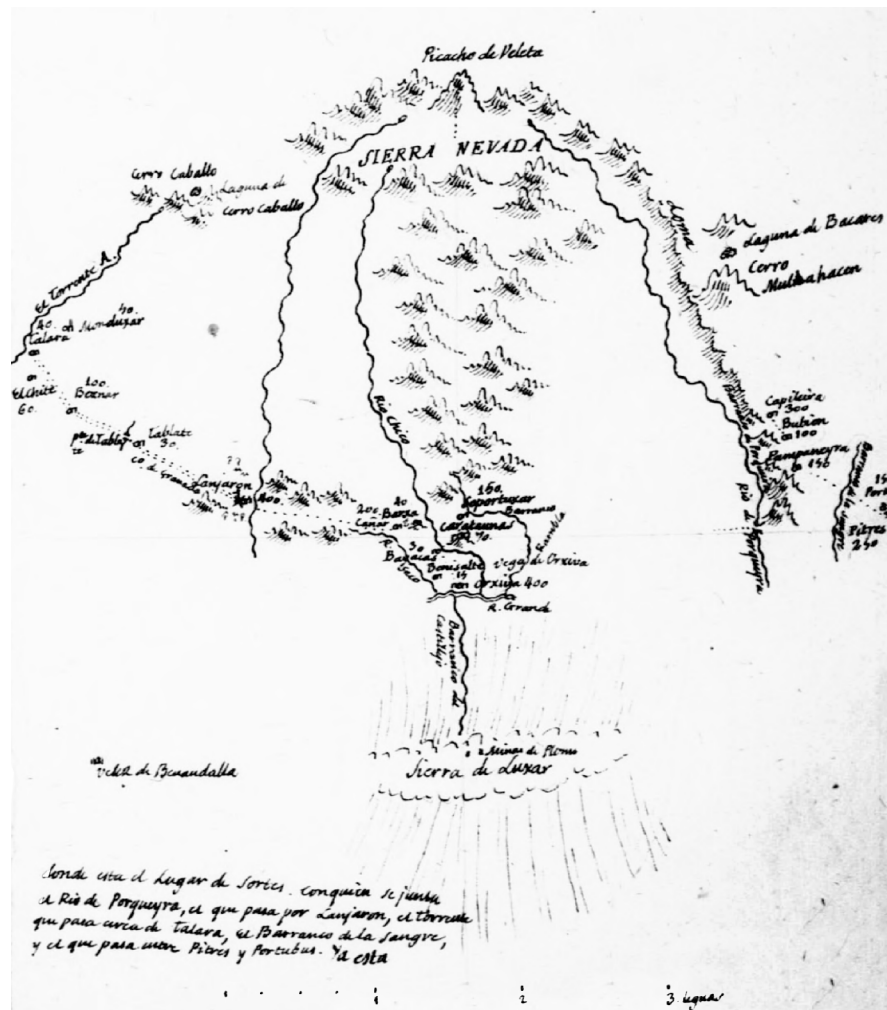 Picacho de Veleta
SIERRA NEVADA
Cerro Caballo
Laguna de
Cerro Caballo
El Torrente A.
Loma
Laguna de Bacares
Cerro
Mulhahacen
40. 40.
Talara
Monduxar
El Chite
60.
100
Beznar
Tablate
30.
Lanjaron
400.
Rio Chico
Capileira
300
Bubion
100
Pampaneyra
150
Rio de Porqueyra
Pitres
250
200. 40
Barja
Cañar
150.
Soportuxar
Barranco
Carataunas
70.
Rambla
R. Seco
50
Bayacas
Benisalte
15
Vega de Orxiva
Orxiva 400
R. Grande
Barranco de
Castillejo
Minas de Plomo
Sierra de Luxar
Velez de Benaudalla
donde esta el Lugar de Sortes. Conquien se junta
el Rio de Porqueyra, el que pasa por Lanjaron, el torrente
que pasa cerca de Talara, el Barranco de la Sangre,
y el que pasa entre Pitres y Portubus. Ya esta
1 2 3 leguas